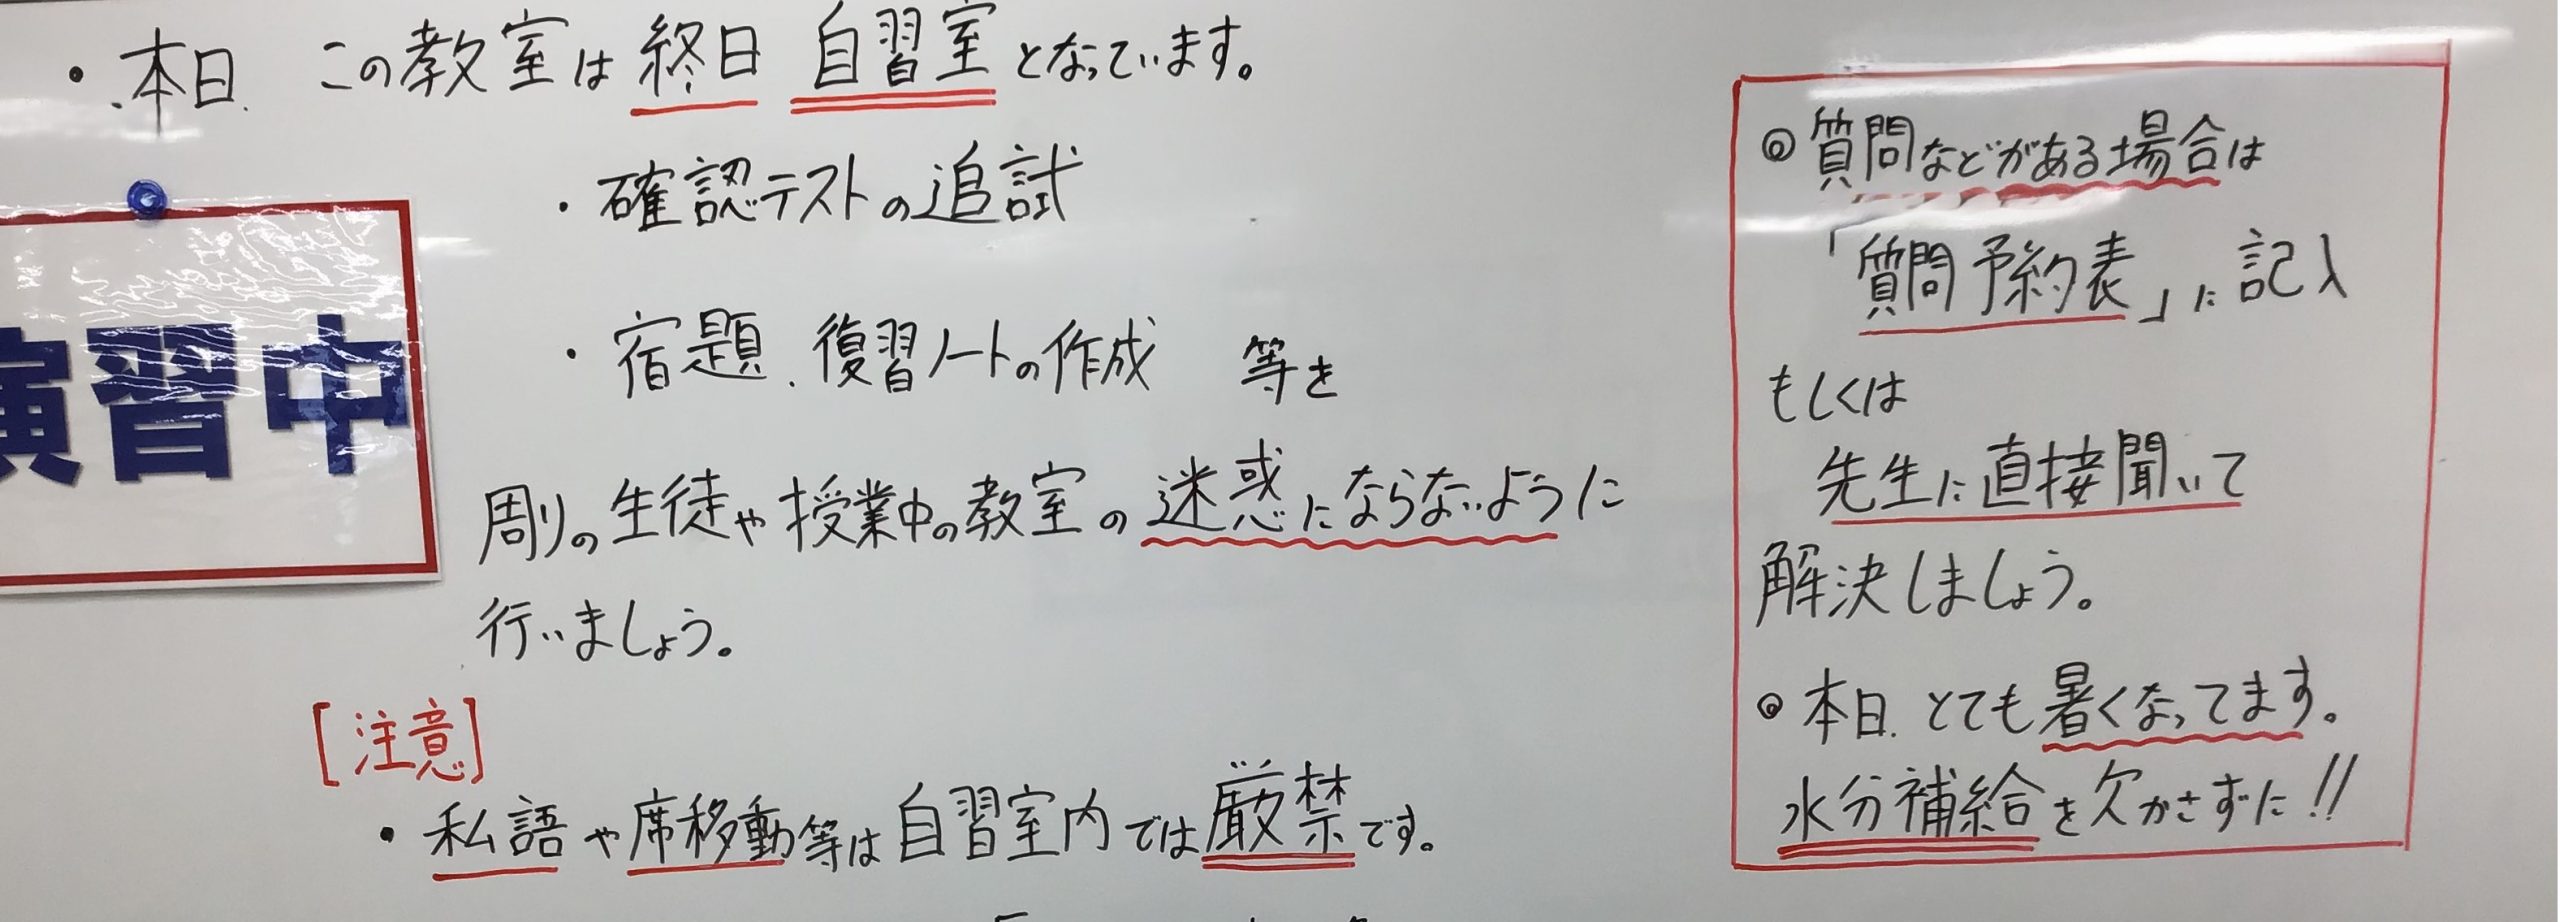 ・本日 この教室は終日 自習室となっています。
・確認テストの追試
・宿題、復習ノートの作成 等を
周りの生徒や授業中の教室の迷惑にならないように
行いましょう。
[注意]
・私語や席移動等は自習室内では厳禁です。
演習中
◎質問などがある場合は
「質問予約表」に記入
もしくは
先生に直接聞いて
解決しましょう。
◎本日、とても暑くなってます。
水分補給を欠かさずに!!